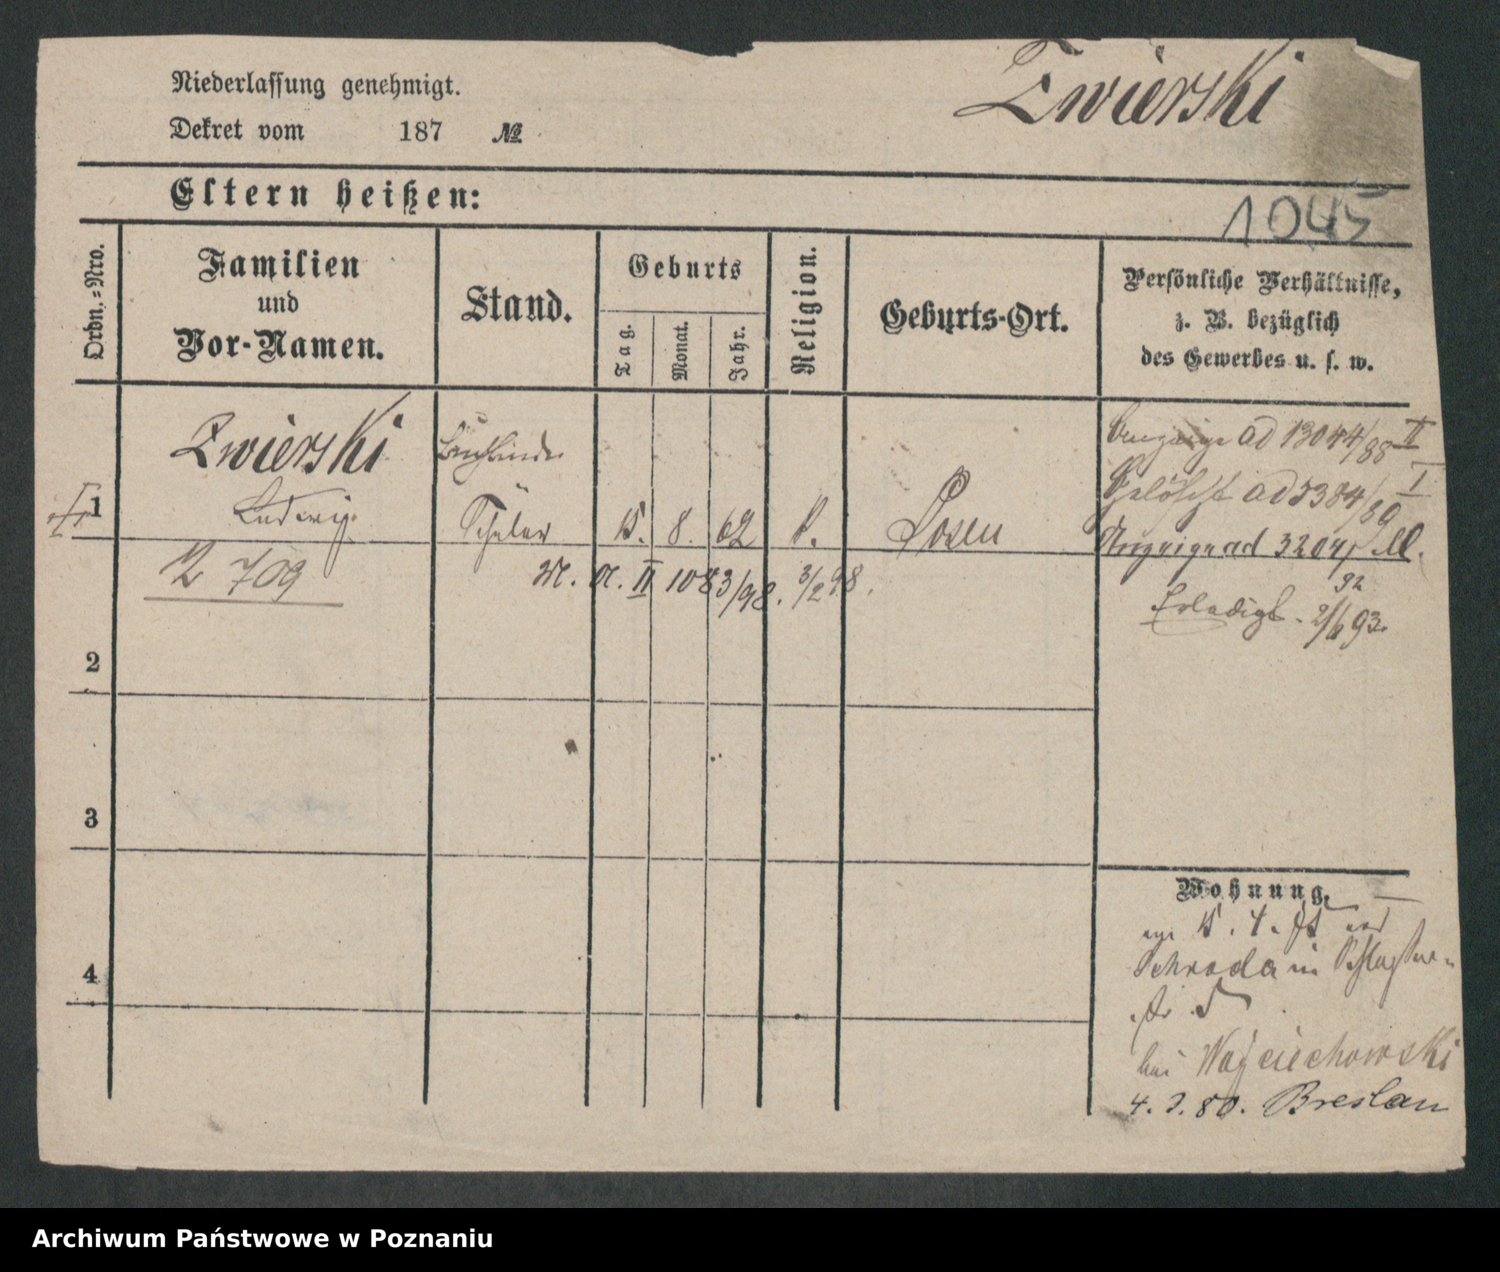 Niederlassung genehmigt.
Zwierski
Dekret vom 187 №
Eltern heißen:
1045
Ordn.-Nro.
Familien
und
Vor-Namen.
Stand.
Geburts
Tag.
Monat.
Jahr.
Religion.
Geburts-Ort.
Persönliche Verhältnisse,
z. B. bezüglich
des Gewerbes u. s. w.
1
Zwierski
Ludwig
Buchbinder
Schüler
15. 8. 62
k.
Posen
ad 13044/88 II
Gelöscht ad 5384/89 I
ad 3204/92 M.
Erledigt. 2/6 93.
Z 709
M. A. II 1083/98. 3/2 98.
2
3
4
Wohnung.
15. 4.
Schroda in
5
bei Wojciechowski
4. 3. 80. Breslau
Archiwum Państwowe w Poznaniu